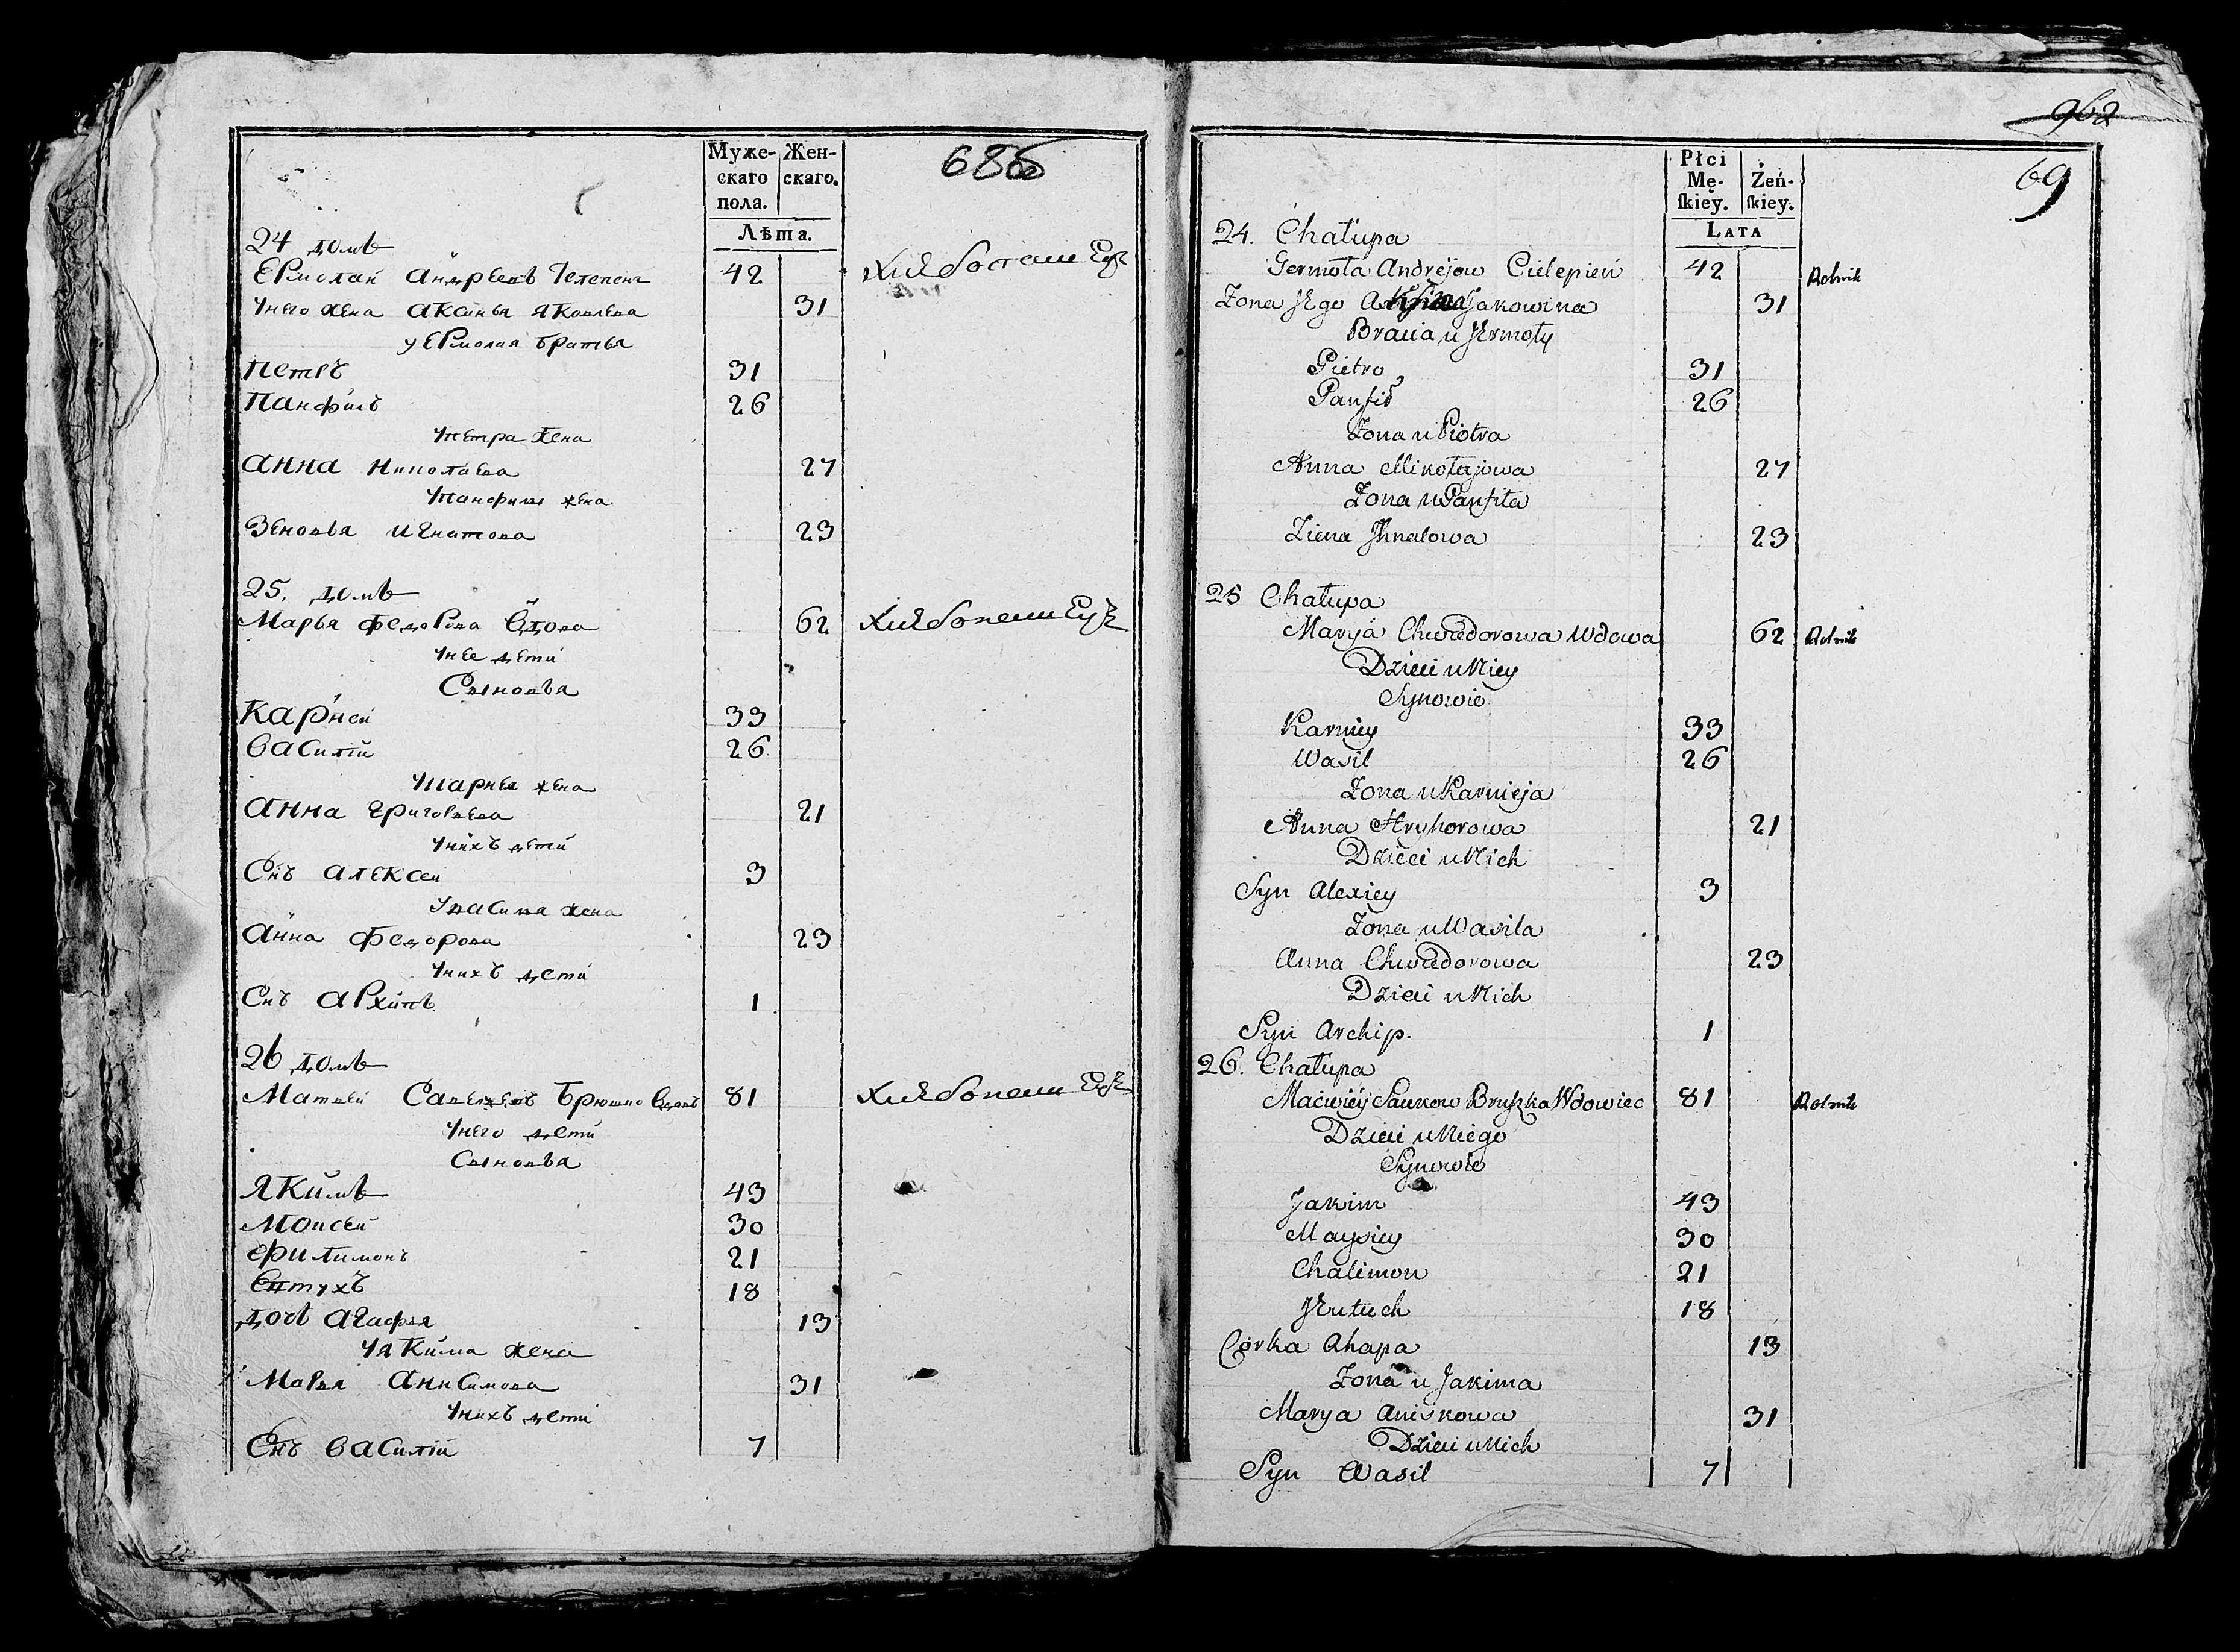 Муже-
скаго
пола.
Жен-
скаго.
Лѣта.
686
24 домъ
Ермолай Андреевъ Телепень 42 Хлебопашецъ
Унего жена Аксинья Яковлева 31
у Ермолая братья
Петръ 31
Панфилъ 26
Упетра жена
Анна Николаева 27
Упанфила жена
Зеновья Игнатова 23
25. домъ
Марья Федорова Вдова 62 Хлебопашецъ
Унее дети
Сыновья
Карней 33
Василий 26
Укарнея жена
Анна Григорьева 21
Унихъ дети
Снъ Алексей 3
Увасиля жена
Анна Федорова 23
Унихъ дети
Снъ Архипъ 1
26 домъ
Матвей Савельевъ Брюшко Вдовъ 81 Хлебопашецъ
Унего дети
Сыновья
Якимъ 43
Моисей 30
Филимонъ 21
Ентухъ 18
дочь Агафья 13
Уякима жена
Марья Анисимова 31
Унихъ дети
Снъ Василий 7
962
69
Płci
Mę-
skiey.
Żeń-
skiey.
LATA
24. Chałupa
Jermoła Andrejow Cielepień 42 Rolnik
Zona Jego Jakowina 31
Bracia u Jermoły
Pietro 31
Panfił 26
Zona u Piotra
Anna Mikołajowa 27
Zona u Panfiła
Ziena Jhnatowa 23
25 Chałupa
Marya Chwedorowa Wdowa 62 Rolnik
Dzieci u Niey
Synowie
Karniey 33
Wasil 26
Zona u Karnieja
Anna Hryhorowa 21
Dzieci u Nich
Syn Alexiey 3
Zona u Wasila
Anna Chwedorowa 23
Dzieci u Nich
Syn Archip. 1
26. Chałupa
Maciwiey Saukow Bruszka Wdowiec 81 Rolnik
Dzieci u Niego
Synowie
Jakim 43
Maysiey 30
Chalimon 21
Jewtuch 18
Corka Ahapa 13
Zona u Jakima
Marya Aniskowa 31
Dzieci u Nich
Syn Wasil 7